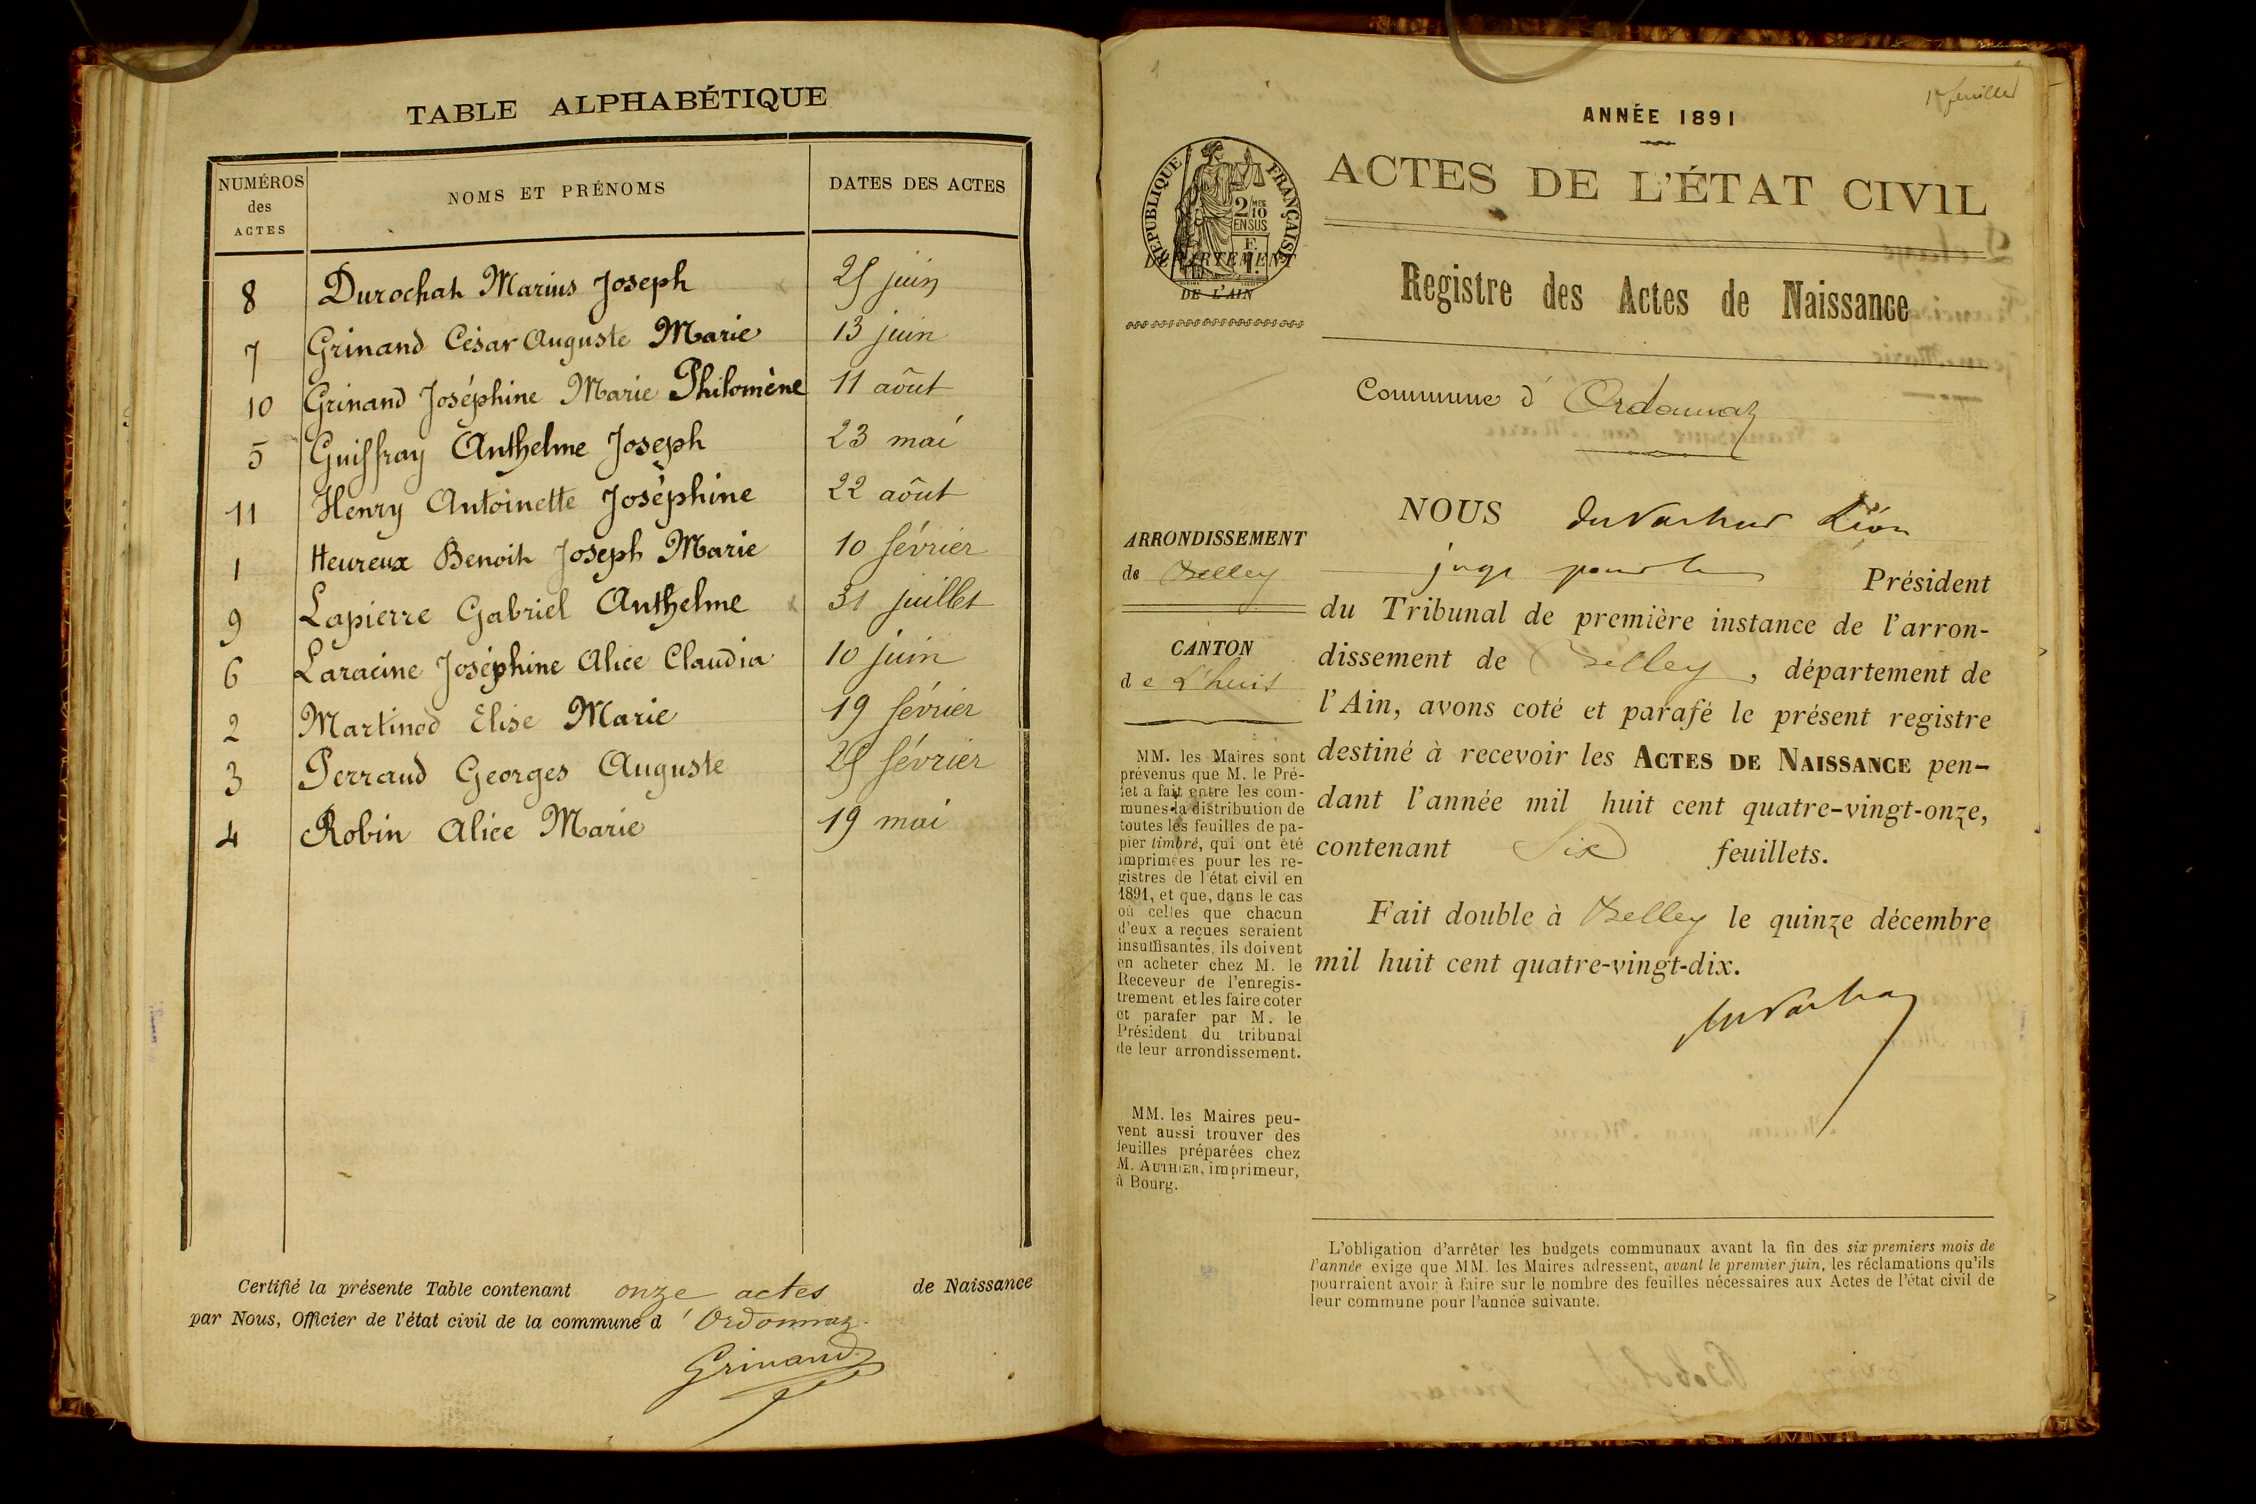 TABLE ALPHABÉTIQUE
NUMÉROS des ACTES
NOMS ET PRÉNOMS
DATES DES ACTES
8 Durochat Marius Joseph 25 juin
7 Grinand César Auguste Marie 13 juin
10 Grinand Joséphine Marie Philomène 11 aôut
5 Guiffray Anthelme Joseph 23 mai
11 Henry Antoinette Joséphine 22 aôut
1 Heureux Benoit Joseph Marie 10 février
9 Lapierre Gabriel Anthelme 31 juillet
6 Laracine Joséphine Alice Claudia 10 juin
2 Martinod Elise Marie 19 février
3 Perraud Georges Auguste 25 février
4 Robin Alice Marie 19 mai
Certifié la présente Table contenant onze actes de Naissance
par Nous, Officier de l'état civil de la commune d'Ordonnaz.
Grinand
1er feuillet
ANNÉE 1891
RÉPUBLIQUE FRANÇAISE
2/10 MES
EN SUS
DÉPARTEMENT
DE L'AIN
ACTES DE L'ÉTAT CIVIL
Registre des Actes de Naissance
Commune d'Ordonnaz
ARRONDISSEMENT
de Belley
CANTON
de L'huis
MM. les Maires sont
prévenus que M. le Pré-
fet a fait entre les com-
munes la distribution de
toutes les feuilles de pa-
pier timbré, qui ont été
imprimées pour les re-
gistres de l'état civil en
1891, et que, dans le cas
où celles que chacun
d'eux a reçues seraient
insuffisantes, ils doivent
en acheter chez M. le
Receveur de l'enregis-
trement et les faire coter
et parafer par M. le
Président du tribunal
de leur arrondissement.
MM. les Maires peu-
vent aussi trouver des
feuilles préparées chez
M. AUTHIER, imprimeur,
à Bourg.
NOUS Léon
juge pour le Président
du Tribunal de première instance de l'arron-
dissement de Belley, département de
l'Ain, avons coté et parafé le présent registre
destiné à recevoir les ACTES DE NAISSANCE pen-
dant l'année mil huit cent quatre-vingt-onze,
contenant Six feuillets.
Fait double à Belley le quinze décembre
mil huit cent quatre-vingt-dix.
L'obligation d'arrêter les budgets communaux avant la fin des six premiers mois de
l'année exige que MM. les Maires adressent, avant le premier juin, les réclamations qu'ils
pourraient avoir à faire sur le nombre des feuilles nécessaires aux Actes de l'état civil de
leur commune pour l'année suivante.